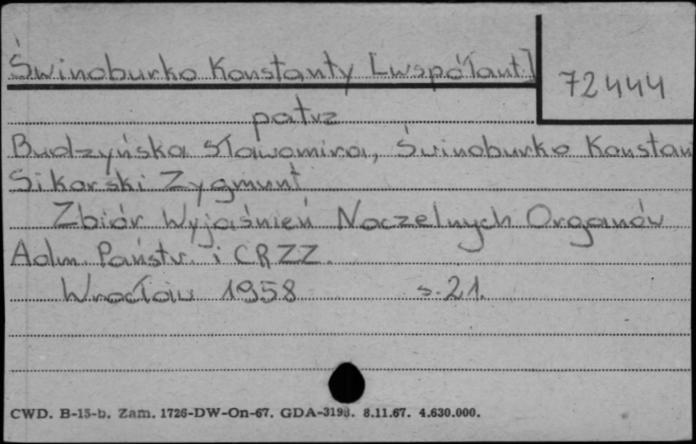 Świnoburko Konstanty [współaut.]
72444
patrz
Budzyńska Sławomira, Świnoburko Konstan
Sikorski Zygmunt
Zbiór Wyjaśnień Naczelnych Organów
Adm. Państw. i CRZZ.
Wrocław 1958 s. 21.
CWD. B-15-b. Zam. 1726-DW-On-67. GDA-3198. 8.11.67. 4.630.000.